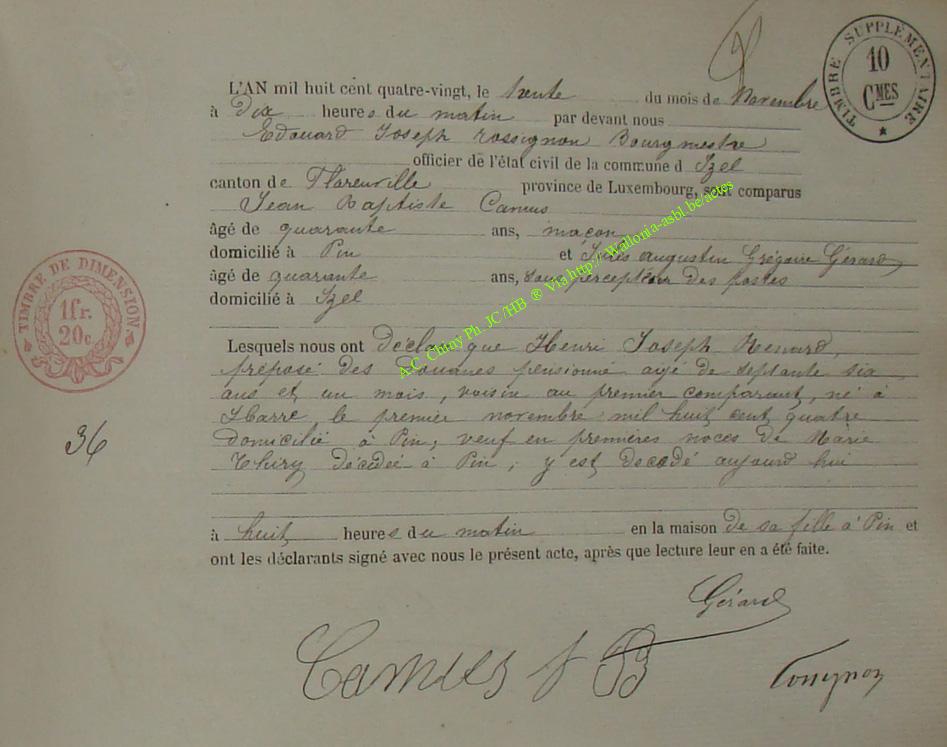 TIMBRE SUPPLÉMENTAIRE
10
CMES
L'AN mil huit cent quatre-vingt, le trente du mois de Novembre
à Dix heures du matin par devant nous
Edouard Joseph rossignon Bourgmestre
officier de l'état civil de la commune d Izel
canton de Florenville province de Luxembourg, sont comparus
Jean Baptiste Camus
âgé de quarante ans, maçon
domicilié à Pin et Jules augustin Grégoire Gérard
âgé de quarante ans, sous percepteur des postes
domicilié à Izel
TIMBRE DE DIMENSION
1fr.
20c
Lesquels nous ont déclaré que Henri Joseph Renard,
préposé des Douanes pensionné agé de septante six
ans et un mois, voisin au premier comparant, né à
Harre le premier novembre mil huit cent quatre
domicilié à Pin, veuf en premières noces de Marie
Thiry décédée à Pin, y est decedé aujourd hui
36
à huit heures du matin en la maison de sa fille à Pin et
ont les déclarants signé avec nous le présent acte, après que lecture leur en a été faite.
Gérard
Camus J B
rossignon
A.C. Chiny Ph. JC/HB ® Via http://Wallonia-asbl.be/actes